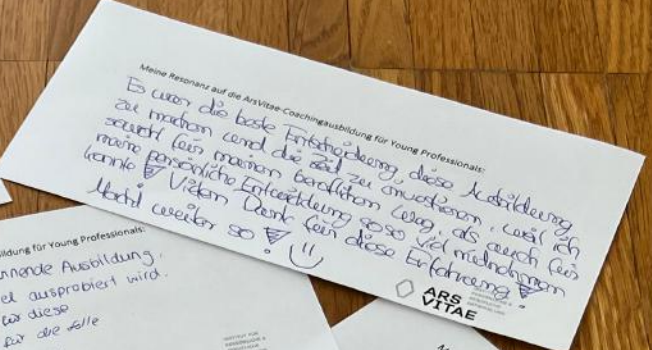 Meine Resonanz auf die ArsVitae-Coachingausbildung für Young Professionals:
Es war die beste Entscheidung, diese Ausbildung
zu machen und die Zeit zu investieren, weil ich
sowohl für meinen beruflichen Weg, als auch für
meine persönliche Entwicklung soso viel mitnehmen
konnte! Vielen Dank für diese Erfahrung!
Macht weiter so!
ARS
VITAE
ildung für Young Professionals:
nnende Ausbildung,
el ausprobiert wird.
für diese
für die tolle
INSTITUT FÜR